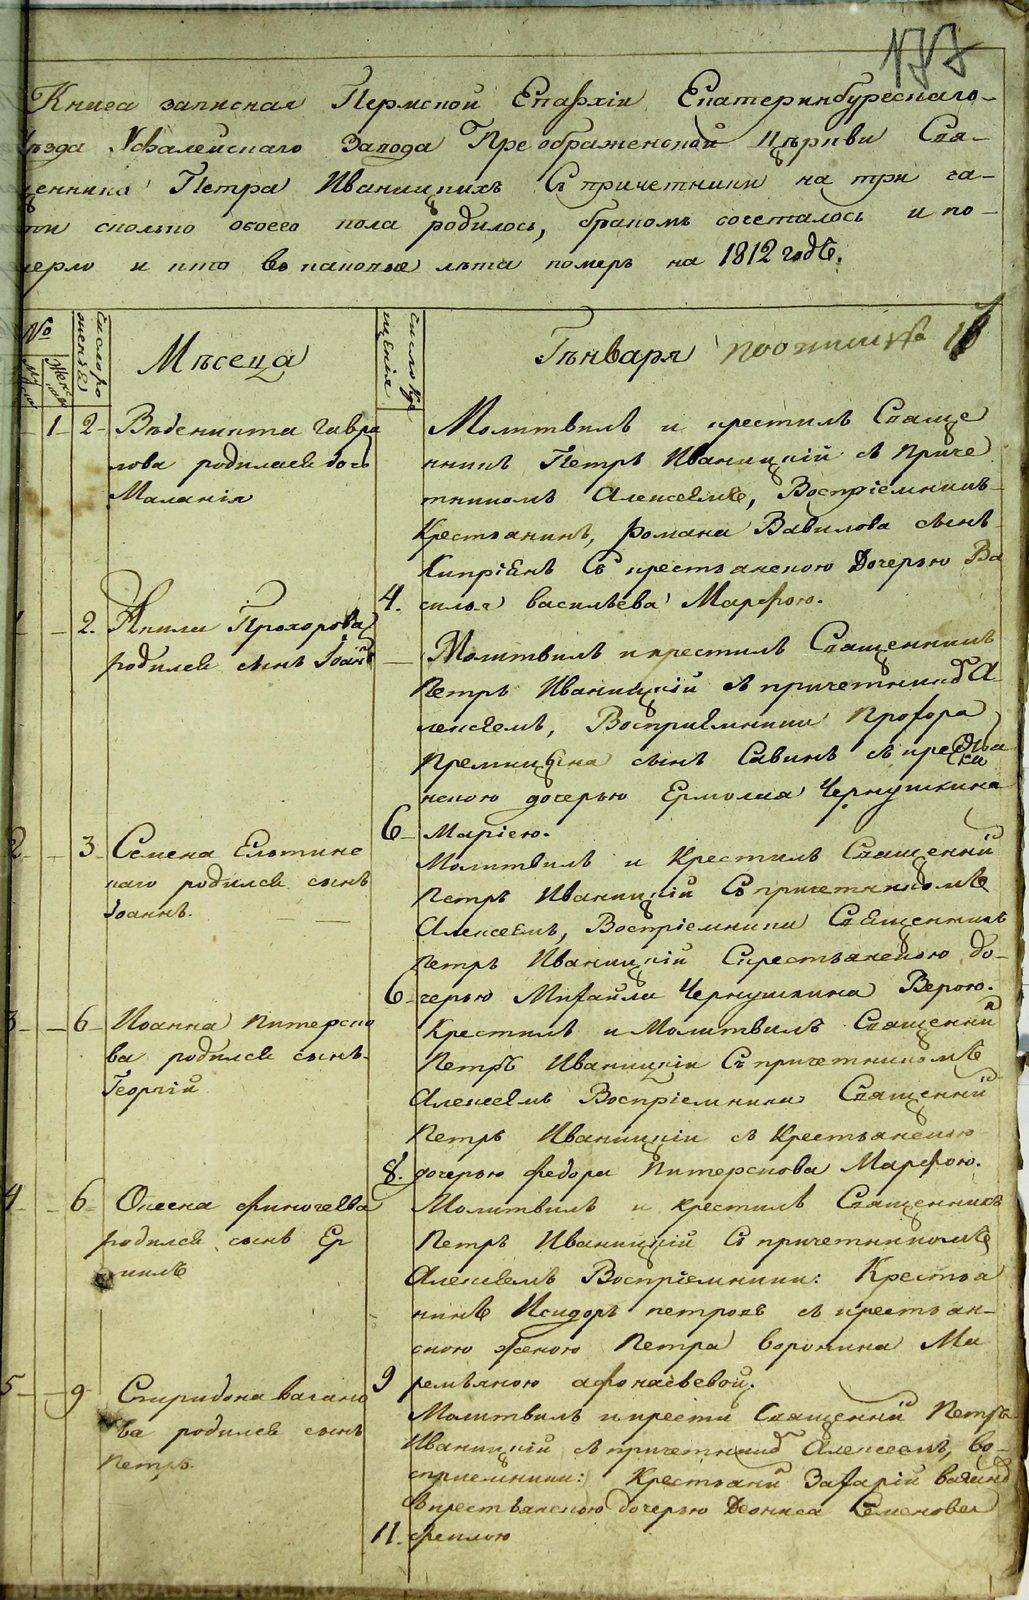 177
Книга записная Пермской Епархіи Екатеринбурескаго
уѣзда Уфалейскаго Завода Преображенской Церкви Свя-
щенника Петра Иваницкихъ Съ причетники на три ча-
сти сколько обоего пола родилось, бракомъ сочеталось и по-
мерло и кто въ каковые лѣта померъ на 1812 годѣ.
№
Число рожденія
Мѣсеца
Число крещенія
Гѣнваря
муж
жен
1 2 Гавра
лова родилась дочь
Маланія
Молитвилъ и крестилъ Свяще
нникъ Петръ Иваницкій съ приче
тникомъ Алексеемъ, Воспріемникъ
Крестьянинъ, Романа Вавилова сынъ
Кипріянъ Съ крестьянскою Дочерью Ва
4. васильева Марфою.
1 2. Прохорова
родился сынъ Іоаннъ
Молитвилъ и крестилъ Священникъ
Петръ Иваницкій съ причетником А
лексеемъ, Восприемники Прохора
сынъ Савинъ съ крестья
нскою дочерью Ермолая Чернушкина
6 Маріею.
2 3 Семена
родился сынъ
Іоаннъ.
Молитвилъ и Крестилъ Священній
Петръ Иваницкій Съ причетникомъ
Алексеемъ, Воспріемники Священникъ
Петръ Иваницкій Скрестьянскою до-
6 черью Михайли Чернушкина Верою.
3 6 Иоанна Питерско
ва родился сынъ
Георгій
Крестилъ и Молитвилъ Священній
Петръ Иваницкіи Съ причетникомъ
Алексеемъ Воспріемники Священній
Петръ Иваницкіи съ Крестьянскою
8. дочерью Федора Питерскова Марфою.
4 6
родился сынъ Ер
милъ
Молитвилъ и крестилъ Священникъ
Петръ Иваницкій Съ причетникомъ
Алексеемъ Воспріемники: Крестья
нинъ Исидоръ петровъ съ крестьян-
скою женою Петра воронина Ма
9 ремьяною афонасьевой.
5 9 Спиридона вагано
ва родился сынъ
Петръ.
Молитвилъ и крести Священній Петръ
Иваницкій съ причетником Алексеемъ, во-
сприемники: Крестьяни Захарій
съ крестьянскою дочерью Дениса Семенова
11. феклою